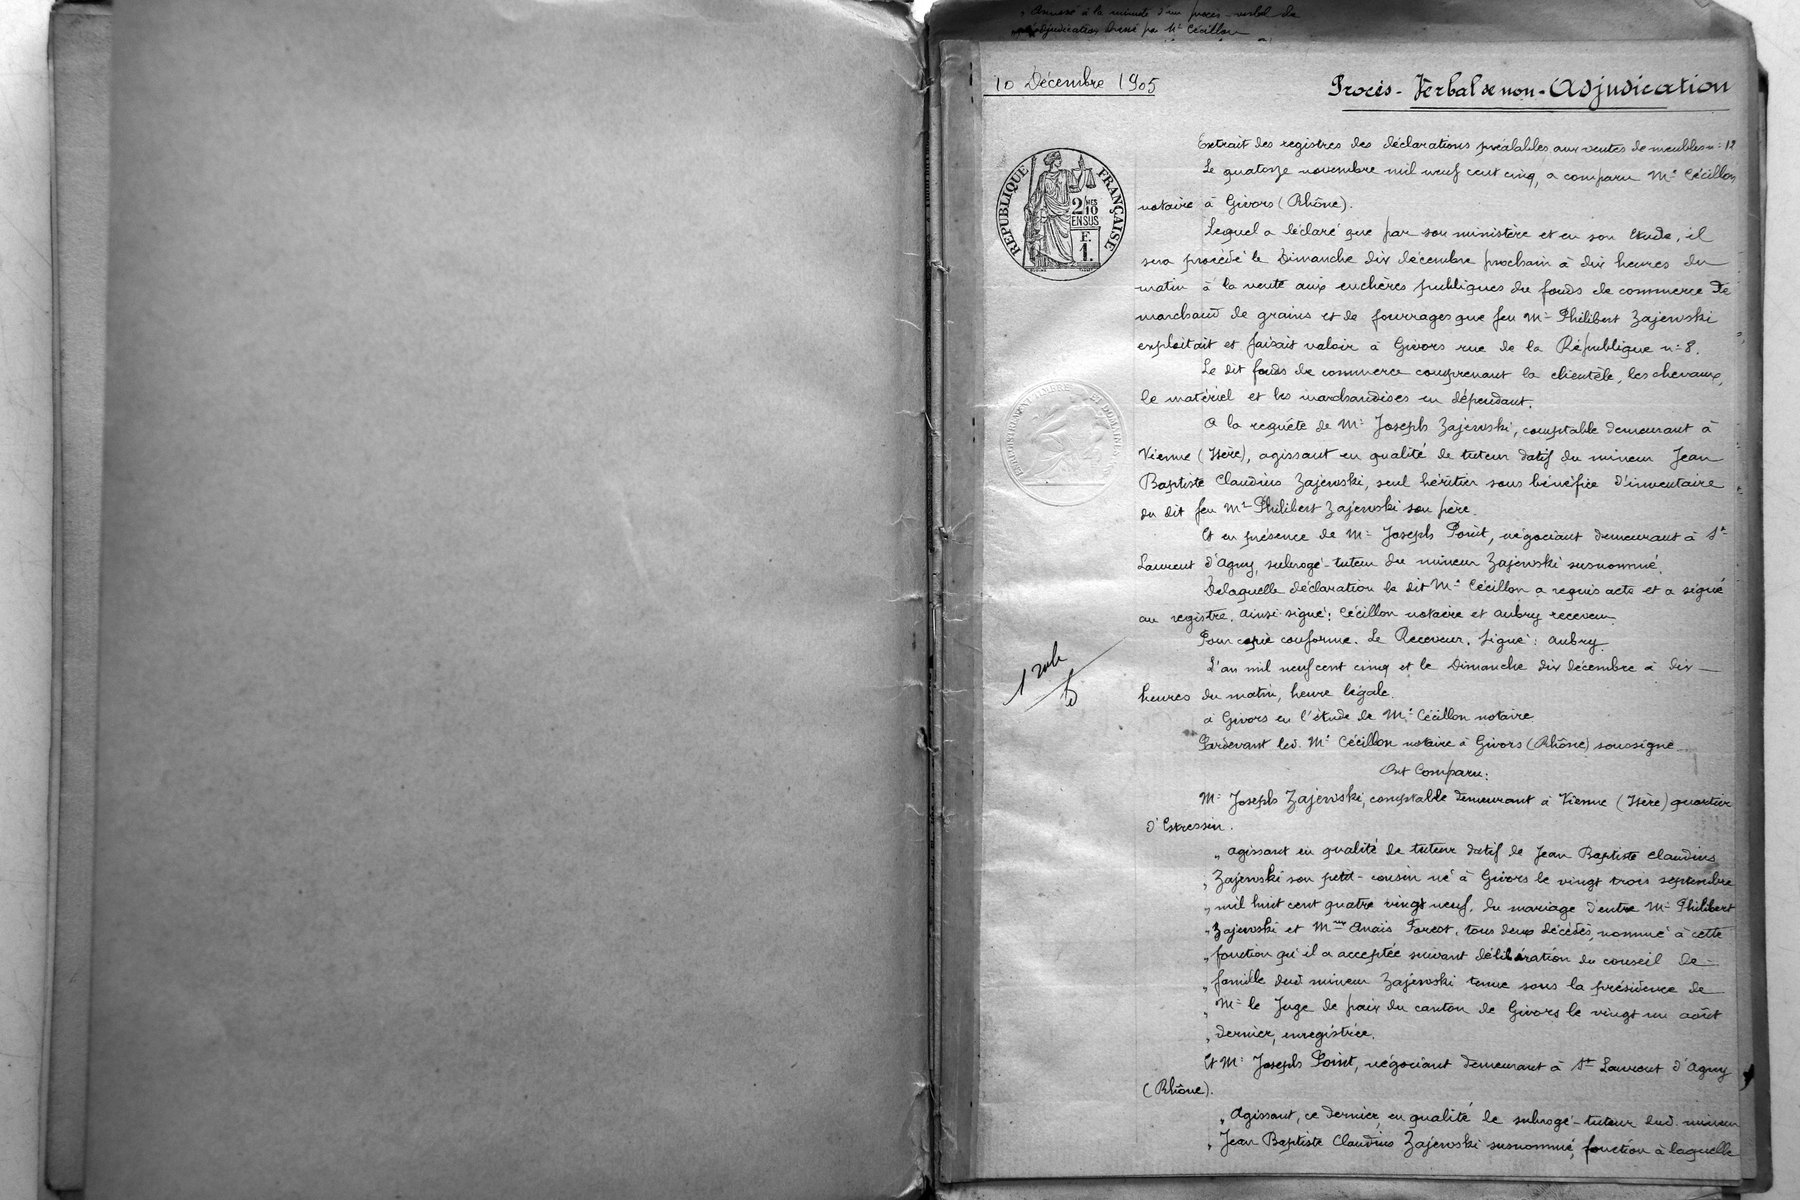 Annexé à la minute d'un procès-verbal de
adjudication dressé par Me Cécillon
10 Décembre 1905
Procès-Verbal de non-Adjudication
REPUBLIQUE FRANÇAISE
2/10 MES
EN SUS
F.
1.
Extrait des registres des déclarations préalables aux ventes de meubles n: 12
Le quatorze novembre mil neuf cent cinq, a comparu Me Cécillon
notaire à Givors (Rhône).
Lequel a déclaré que par son ministère et en son Etude, il
sera procédé le Dimanche dix décembre prochain à dix heures du
matin à la vente aux enchères publiques du fonds de commerce de
marchand de grains et de fourrages que feu Mr Philibert Zajewski
exploitait et faisait valoir à Givors rue de la République n: 8.
Le dit fonds de commerce comprenant la clientèle, les chevaux,
le matériel et les marchandises en dépendant.
A la requête de Mr Joseph Zajewski, comptable demeurant à
Vienne (Isère), agissant en qualité de tuteur datif du mineur Jean
Baptiste Claudius Zajewski, seul héritier sous bénéfice d'inventaire
du dit feu Mr Philibert Zajewski son père.
Et en présence de Mr Joseph Point, négociant demeurant à St
Laurent d'Agny, subrogé-tuteur du mineur Zajewski susnommé.
Delaquelle déclaration le dit Me Cécillon a requis acte et a signé
au registre. Ainsi signé: Cécillon notaire et Aubry receveur.
Pour copie conforme. Le Receveur. Signé: Aubry.
ENREGISTREMENT TIMBRE ET DOMAINES
L'an mil neuf cent cinq et le Dimanche dix décembre à dix
heures du matin, heure légale.
1 role
à Givors en l'étude de Me Cécillon notaire
Pardevant led. Me Cécillon notaire à Givors (Rhône) soussigné
Ont Comparu:
Mr Joseph Zajewski, comptable demeurant à Vienne (Isère) quartier
d'Estressin.
" agissant en qualité de tuteur datif de Jean Baptiste Claudius
" Zajewski son petit-cousin né à Givors le vingt trois septembre
" mil huit cent quatre vingt neuf, du mariage d'entre Mr Philibert
" Zajewski et Mme Anaïs Foreot, tous deux décédés, nommé à cette
" fonction qu'il a acceptée suivant délibération du conseil de
" famille dud mineur Zajewski tenue sous la présidence de
" Mr le Juge de paix du canton de Givors le vingt un août
" dernier, enregistrée.
Et Mr Joseph Point, négociant demeurant à St Laurent d'Agny
(Rhône).
" Agissant, ce dernier, en qualité de subrogé-tuteur dud. mineur
" Jean Baptiste Claudius Zajewski susnommé, fonction à laquelle